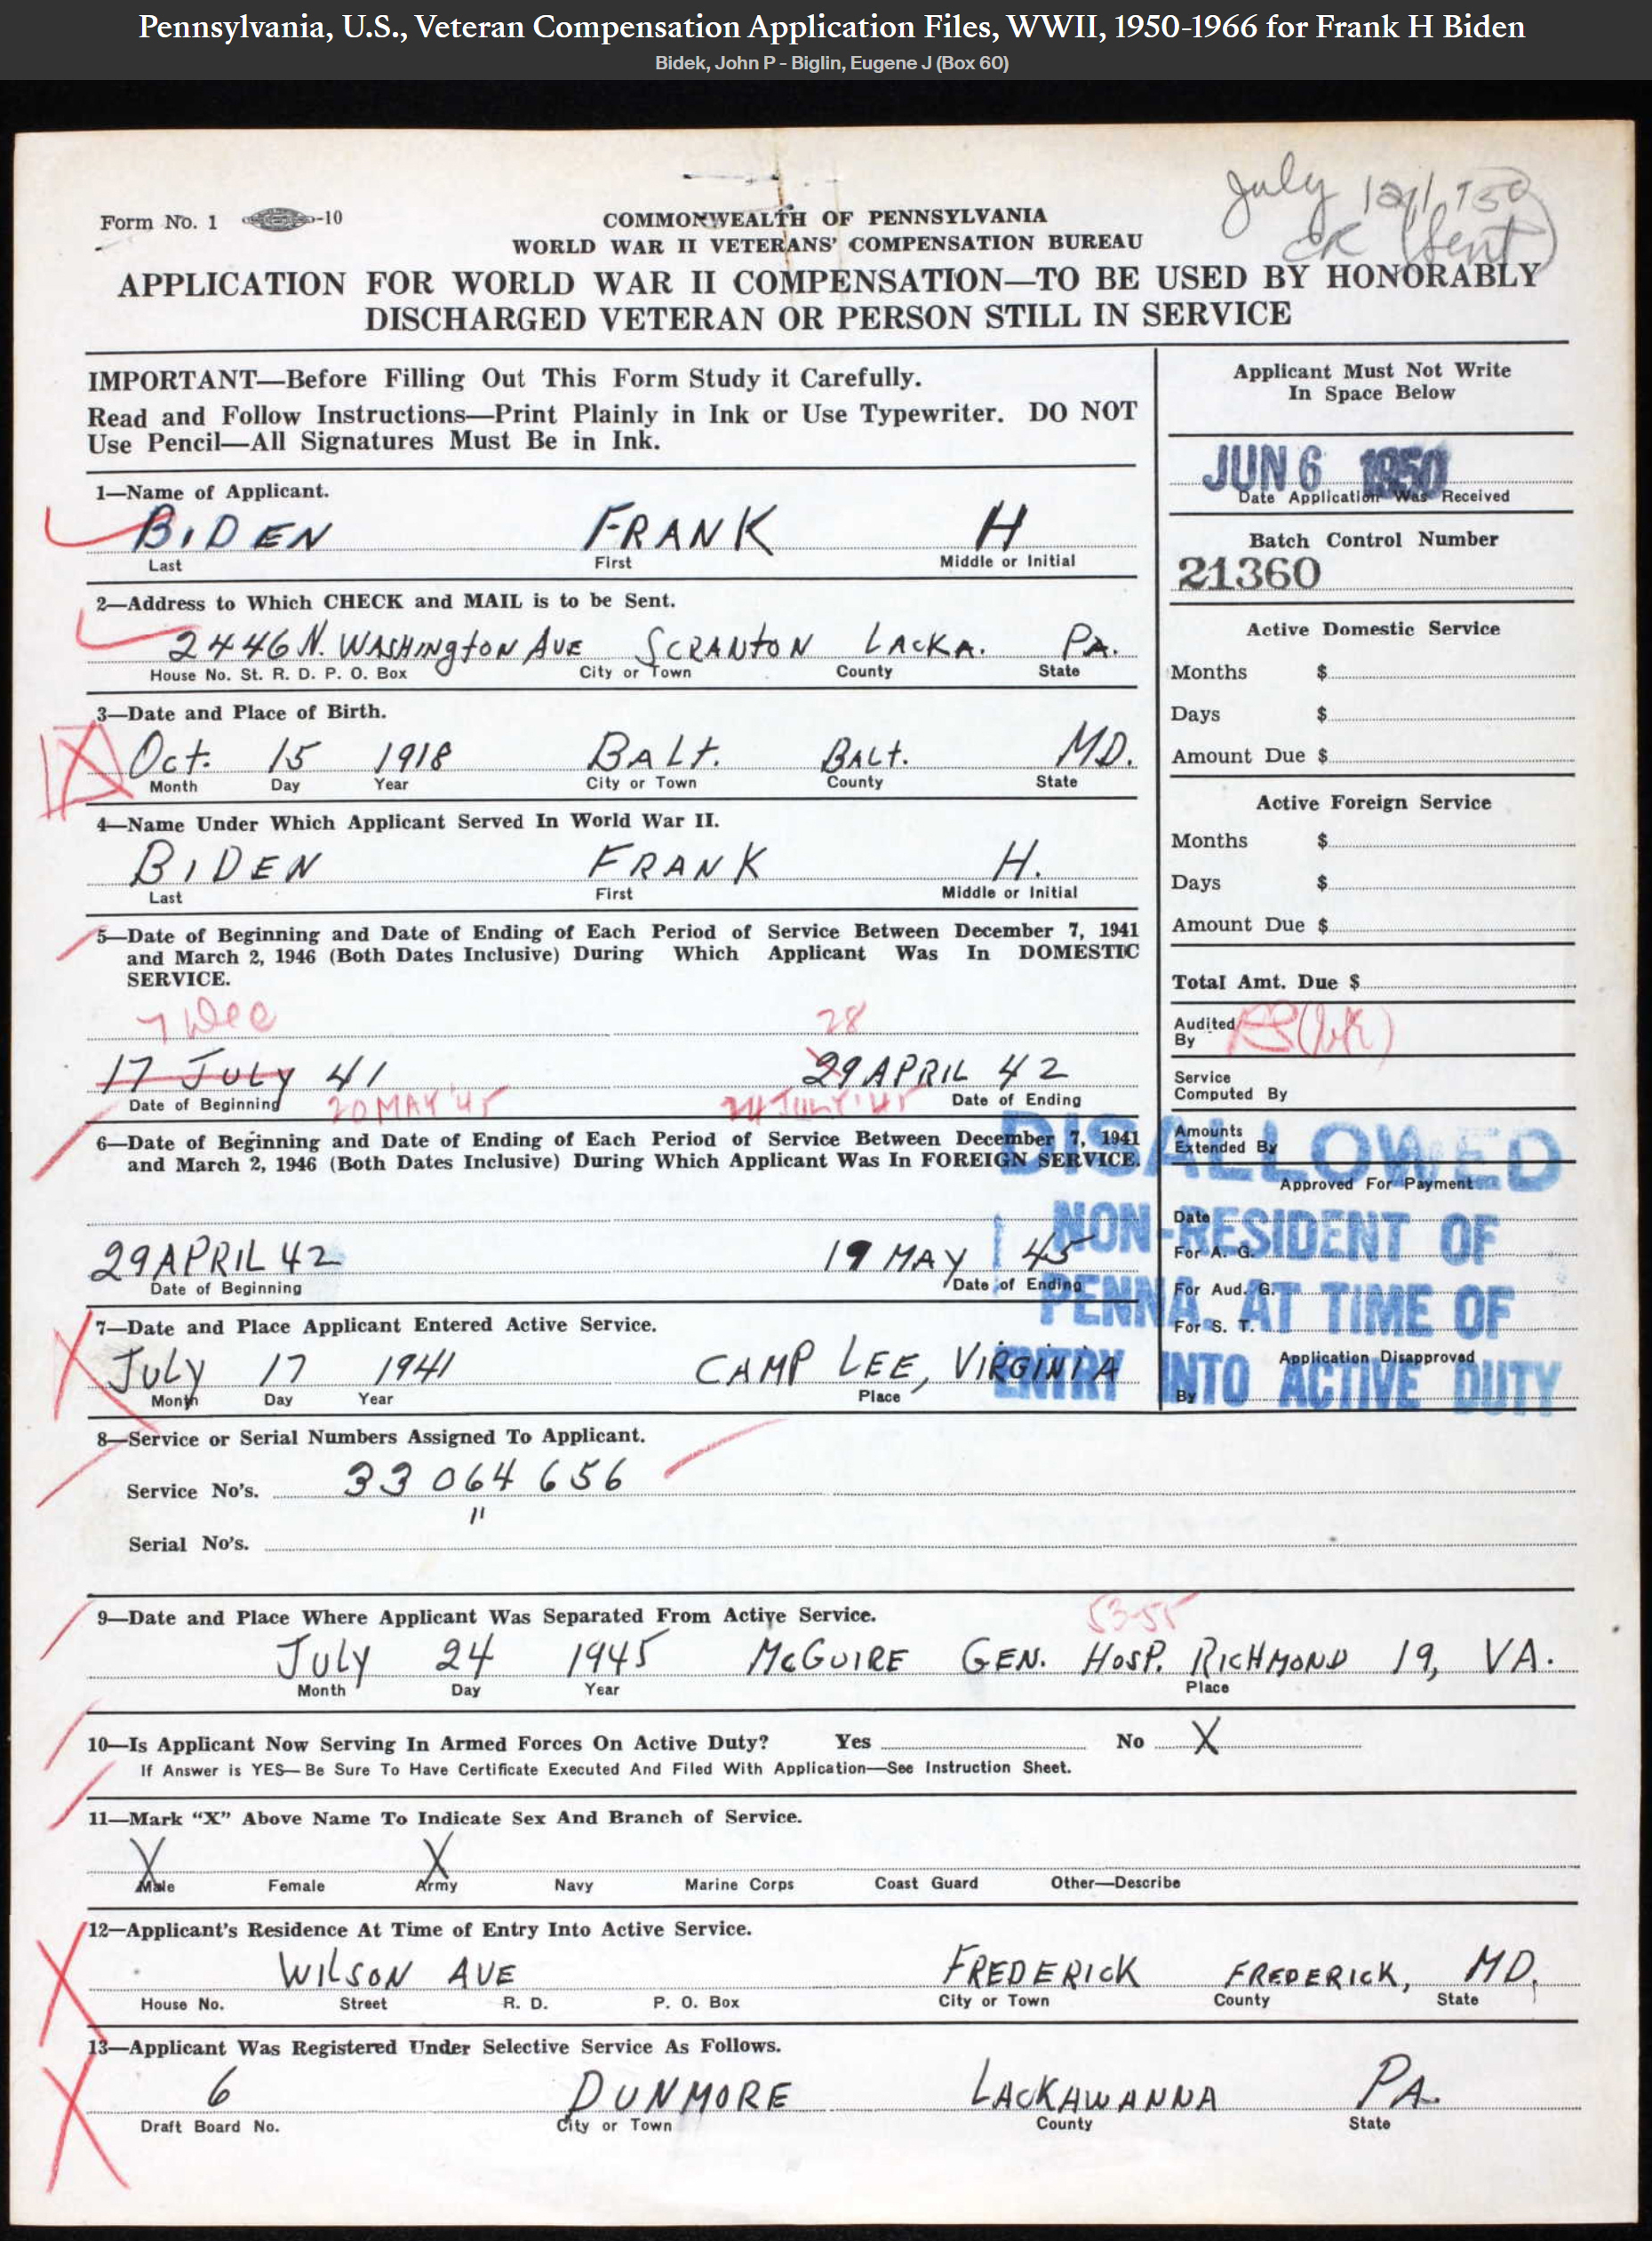 Pennsylvania, U.S., Veteran Compensation Application Files, WWII, 1950-1966 for Frank H Biden
Bidek, John P - Biglin, Eugene J (Box 60)
July 12/1950
OK (Sent)
Form No. 1 -10
COMMONWEALTH OF PENNSYLVANIA
WORLD WAR II VETERANS' COMPENSATION BUREAU
APPLICATION FOR WORLD WAR II COMPENSATION—TO BE USED BY HONORABLY
DISCHARGED VETERAN OR PERSON STILL IN SERVICE
IMPORTANT—Before Filling Out This Form Study it Carefully.
Read and Follow Instructions—Print Plainly in Ink or Use Typewriter. DO NOT
Use Pencil—All Signatures Must Be in Ink.
1—Name of Applicant.
BIDEN FRANK H
Last First Middle or Initial
2—Address to Which CHECK and MAIL is to be Sent.
2446 N. WASHINGTON AVE SCRANTON LACKA. PA.
House No. St. R. D. P. O. Box City or Town County State
3—Date and Place of Birth.
Oct. 15 1918 BALT. BALT. MD.
Month Day Year City or Town County State
4—Name Under Which Applicant Served In World War II.
BIDEN FRANK H.
Last First Middle or Initial
5—Date of Beginning and Date of Ending of Each Period of Service Between December 7, 1941
and March 2, 1946 (Both Dates Inclusive) During Which Applicant Was In DOMESTIC
SERVICE.
7 Dec 28
17 JULY 41 29 APRIL 42
Date of Beginning 20 MAY '45 24 JULY '45 Date of Ending
6—Date of Beginning and Date of Ending of Each Period of Service Between December 7, 1941
and March 2, 1946 (Both Dates Inclusive) During Which Applicant Was In FOREIGN SERVICE.
29 APRIL 42 19 MAY 45
Date of Beginning Date of Ending
7—Date and Place Applicant Entered Active Service.
JULY 17 1941 CAMP LEE, VIRGINIA
Month Day Year Place
Applicant Must Not Write
In Space Below
JUN 6 1950
Date Application Was Received
Batch Control Number
21360
Active Domestic Service
Months $
Days $
Amount Due $
Active Foreign Service
Months $
Days $
Amount Due $
Total Amt. Due $
Audited
By
Service
Computed By
Amounts
Extended By
Approved For Payment
Date
For A. G.
For Aud. G.
For S. T.
Application Disapproved
By
DISALLOWED
NON-RESIDENT OF
PENNA. AT TIME OF
ENTRY INTO ACTIVE DUTY
8—Service or Serial Numbers Assigned To Applicant.
Service No's. 33 064 656
"
Serial No's.
9—Date and Place Where Applicant Was Separated From Active Service.
53-55
JULY 24 1945 McGUIRE GEN. HOSP. RICHMOND 19, VA.
Month Day Year Place
10—Is Applicant Now Serving In Armed Forces On Active Duty? Yes No X
If Answer is YES—Be Sure To Have Certificate Executed And Filed With Application—See Instruction Sheet.
11—Mark "X" Above Name To Indicate Sex And Branch of Service.
X X
Male Female Army Navy Marine Corps Coast Guard Other—Describe
12—Applicant's Residence At Time of Entry Into Active Service.
WILSON AVE FREDERICK FREDERICK, MD.
House No. Street R. D. P. O. Box City or Town County State
13—Applicant Was Registered Under Selective Service As Follows.
6 DUNMORE LACKAWANNA PA.
Draft Board No. City or Town County State